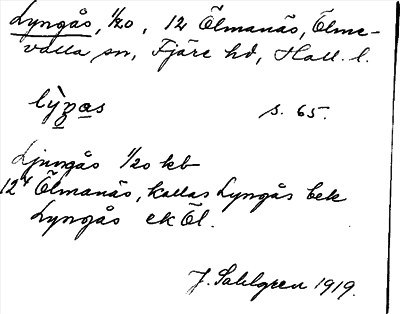 Lyngås, 1/20, 12 Ölmanäs, Ölme-
valla sn, Fjäre hd, Hall. l.
lỳŋas s. 65.
Ljungås 1/20 kb
12 Ölmanäs, kallas Lyngås bek
Lyngås ek Öl.
J. Sahlgren 1919.